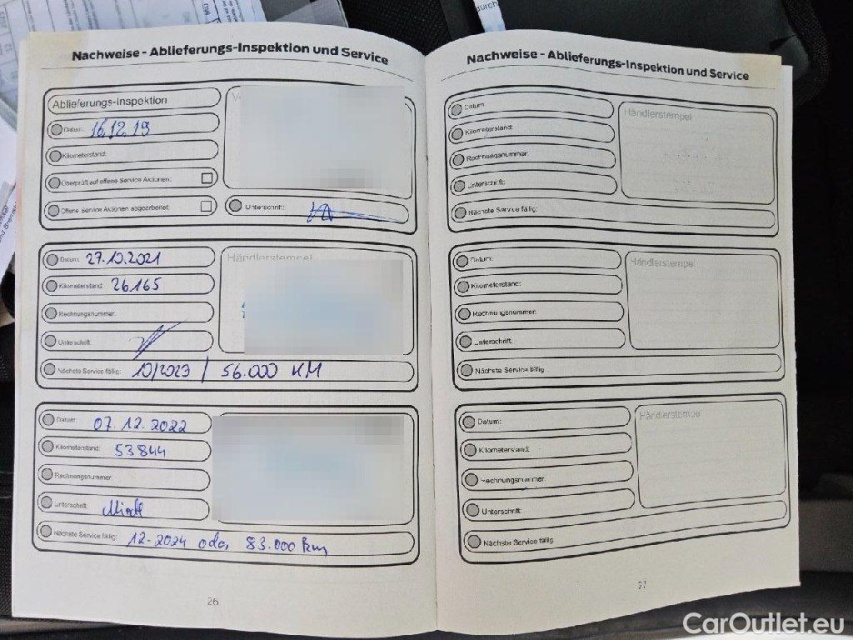 Nachweise - Ablieferungs-Inspektion und Service
Ablieferungs-Inspektion
Datum: 16.12.19
Kilometerstand:
Überprüft auf offene Service Aktionen:
Offene Service Aktionen abgearbeitet:
Unterschrift:
Datum: 27.10.2021
Kilometerstand: 26165
Rechnungsnummer:
Unterschrift:
Nächste Service fällig: 10/2023 / 56.000 KM
Händlerstempel
Datum: 07.12.2022
Kilometerstand: 53844
Rechnungsnummer:
Unterschrift:
Nächste Service fällig: 12-2024 oder 83.000 km
26
Nachweise - Ablieferungs-Inspektion und Service
Datum:
Kilometerstand:
Rechnungsnummer:
Unterschrift:
Nächste Service fällig:
Händlerstempel
Datum:
Kilometerstand:
Rechnungsnummer:
Unterschrift:
Nächste Service fällig
Händlerstempel
Datum:
Kilometerstand:
Rechnungsnummer:
Unterschrift:
Nächste Service fällig
Händlerstempel
27
CarOutlet.eu